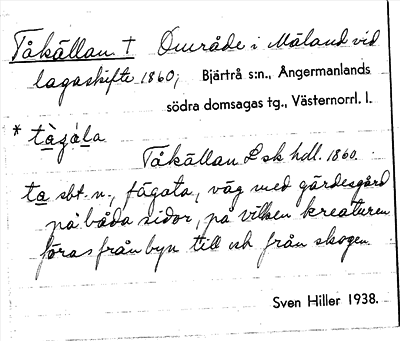 Tåkällan † Område i Måland vid
lagaskifte 1860, Bjärtrå s:n., Ångermanlands
södra domsagas tg., Västernorrl. l.
* tàgála
Tåkällan Lsk hdl. 1860.
ta sbt. n., fägata, väg med gärdesgård
på båda sidor, på vilken kreaturen
föras från byn till och från skogen.
Sven Hiller 1938.